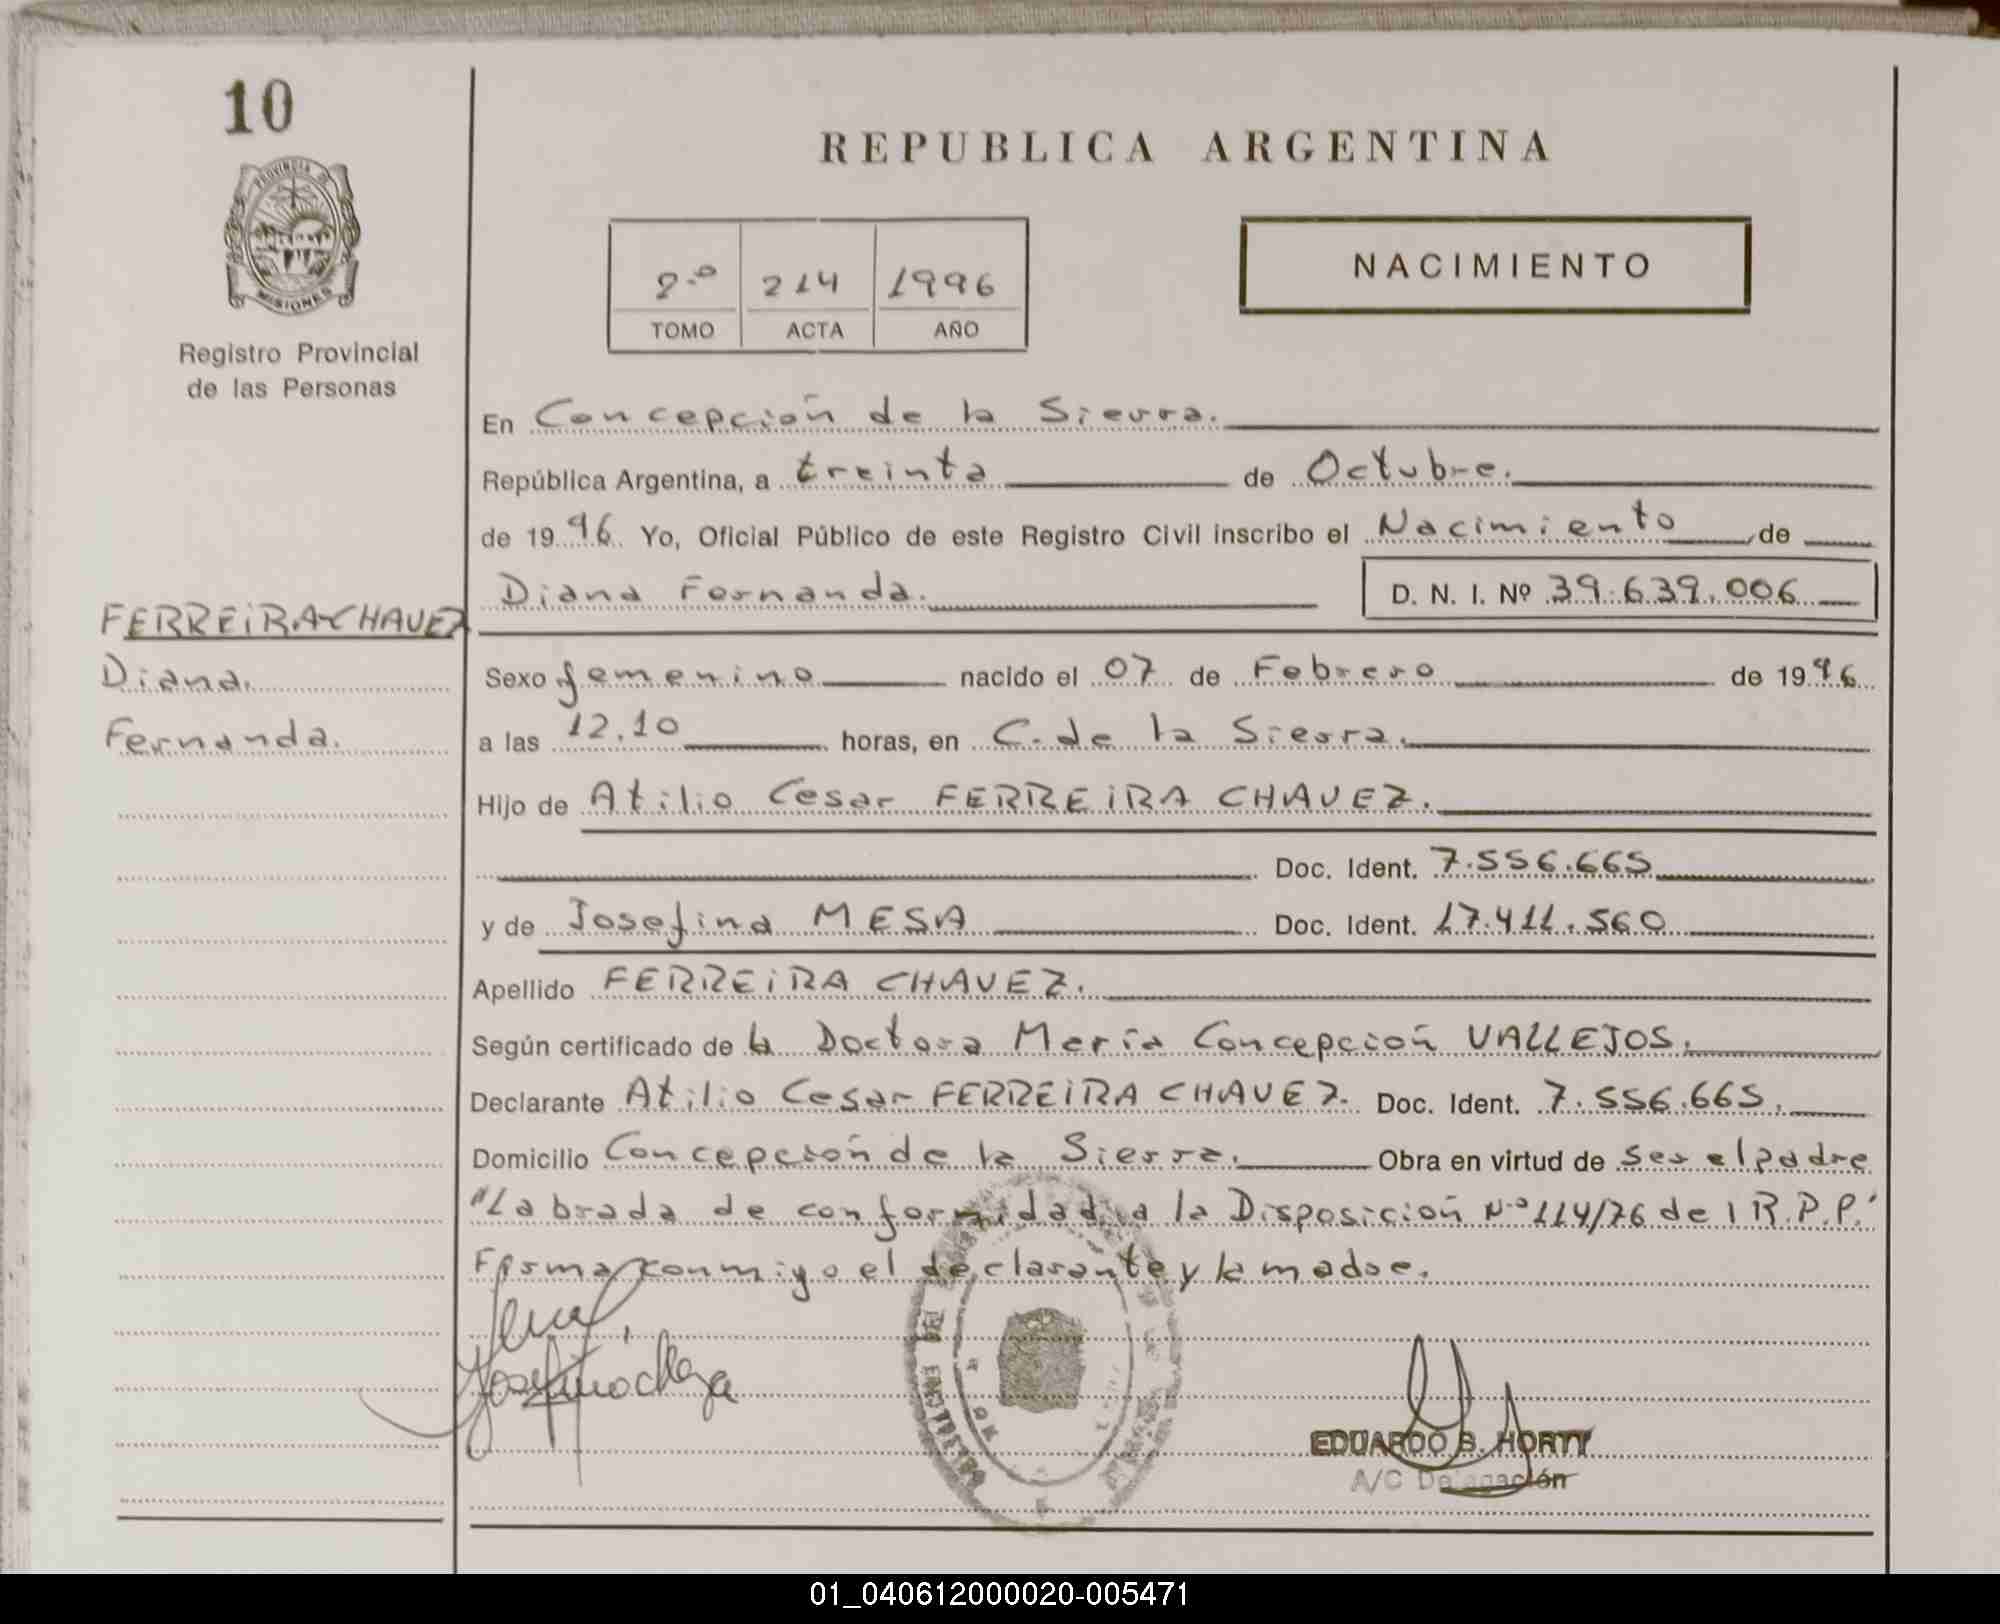 10
PROVINCIA DE
MISIONES
Registro Provincial
de las Personas
FERREIRA CHAVEZ
Diana
Fernanda.
REPUBLICA ARGENTINA
2.º 214 1996
TOMO ACTA AÑO
NACIMIENTO
En Concepción de la Sierra.
República Argentina, a treinta de Octubre.
de 1996 Yo, Oficial Público de este Registro Civil inscribo el Nacimiento de
Diana Fernanda. D. N. I. Nº 39.639.006
Sexo femenino nacido el 07 de Febrero de 1996
a las 12.10 horas, en C. de la Sierra.
Hijo de Atilio Cesar FERREIRA CHAVEZ.
Doc. Ident. 7.556.665
y de Josefina MESA Doc. Ident. 17.411.560
Apellido FERREIRA CHAVEZ.
Según certificado de la Doctora María Concepción VALLEJOS.
Declarante Atilio Cesar FERREIRA CHAVEZ. Doc. Ident. 7.556.665.
Domicilio Concepción de la Sierra. Obra en virtud de ser el padre
"Labrada de conformidad a la Disposición Nº 114/76 del R.P.P."
Firma conmigo el declarante y la madre.
EDUARDO B. HORTY
A/C Delegación
01_040612000020-005471